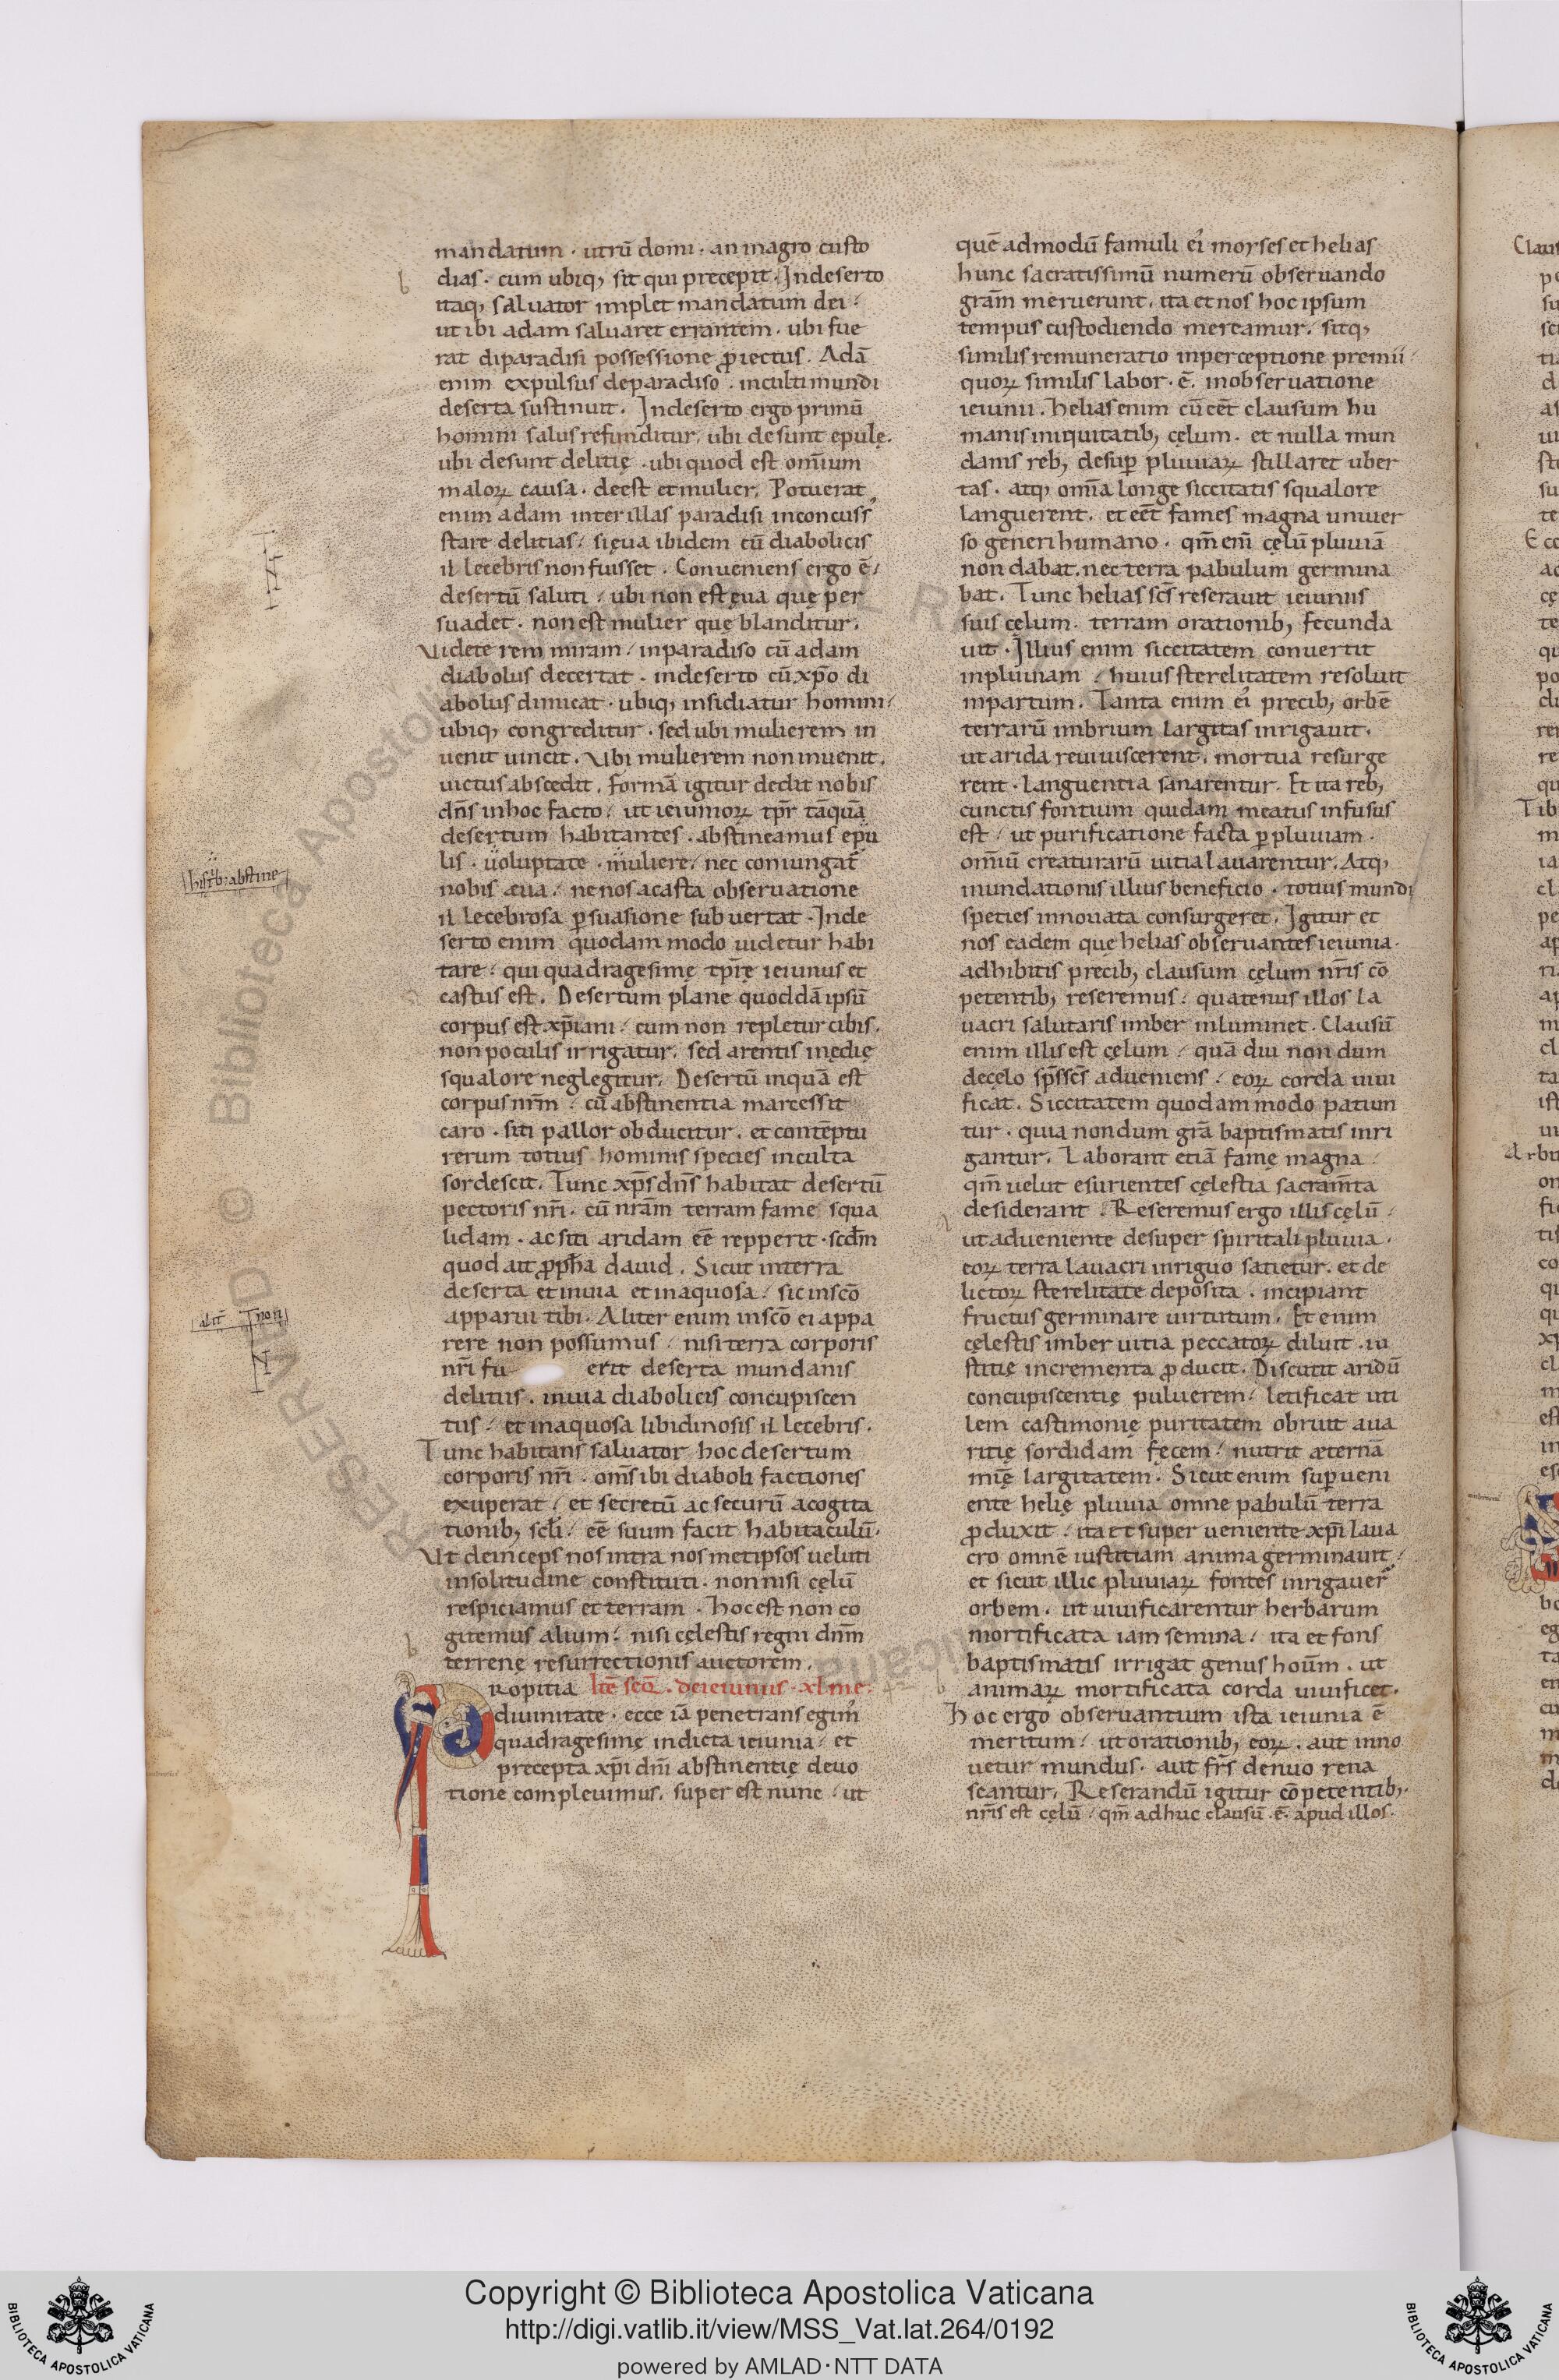 mandatum · utrũ domi · an inagro custo
dias · cum ubiq; sit qui precepit · Indeserto
itaq; saluator implet mandatum dei :
ut ibi adam saluaret errantem · ubi fue
rat diparadisi possessione ꝓiectus . Adã
enim expulsus deparadiso . inculti mundi
deserta sustinuit . Indeserto ergo primũ
homini salus refunditur , ubi desunt epulę .
ubi desunt delitię . ubi quod est om̃ium
maloꝝ causa . deest et mulier . Potuerat
enim adam inter illas paradisi inconcuss’
stare delitias / si ęua ibidem cũ diabolicis
illecebris non fuisset . Conueniens ergo ẽ /
desertũ saluti / ubi non est ęua quę per
suadet . non est mulier quę blanditur .
Videte rem miram / inparadiso cũ adam
diabolus decertat . indeserto cũ xp̃o di
abolus dimicat . ubiq; insidiatur homini /
ubiq; congreditur . sed ubi mulierem in
uenit uincit . Ubi mulierem non inuenit .
uictus abscedit . formã igitur dedit nobis
dñs inhoc facto / ut ieiunioꝝ tp̃r tãquã
desertum habitantes . abstineamus epu
lis . uoluptate . muliere / nec coniungat̃
his tribus abstine
nobis æua / ne nos acasta obseruatione
illecebrosa ꝑsuasione subuertat . Inde
serto enim quodam modo uidetur habi
tare / qui quadragesimę tp̃rę ieiunus et
castus est . Desertum plane quoddã ipsũ
corpus est xp̃iani / cum non repletur cibis .
non poculis irrigatur . sed arentis inędię
squalore neglegitur . Desertũ inquã est
corpus nr̃m / cũ abstinentia marcessit
caro . siti pallor obducitur . et contẽptu
rerum totius hominis species inculta
sordescit . Tunc xp̃s dñs habitat desertũ
pectoris nr̃i . cũ nr̃am terram fame squa
lidam . ac siti aridam eẽ repperit . scd̃m
quod ait ꝓph̃a dauid . Sicut interra
deserta et inuia et inaquosa / sic inscõ
apparui tibi . Aliter enim inscõ ei appa
rere non possumus / nisi terra corporis
nr̃i fu erit deserta mundanis
delitiis . inuia diabolicis concupiscen
tiis / et inaquosa libidinosis illecebris .
Tunc habitans saluator hoc desertum
corporis nr̃i . om̃s ibi diaboli factiones
exuperat / et secretũ ac securũ acogita
tionib; scl̃i / eẽ suum facit habitaculũ .
Ut deinceps nos intra nosmetipsos ueluti
insolitudine constituti . non nisi cęlũ
respiciamus et terram . hoc est non co
gitemus alium / nisi cęlestis regni dñm
terrenę resurrectionis auctorem .
Propitia It̃ẽ sc̃đ . de ieiuniis . xl me .
diuinitate . ecce iã penetrans egim’
quadragesimę indicta ieiunia / et
precepta xp̃i dñi abstinentię deuo
tione compleuimus . super est nunc / ut
quẽadmodũ famuli ei’ moyses et helias
hunc sacratissimũ numerũ obseruando
grãm meruerunt , ita et nos hoc ipsum
tempus custodiendo mereamur . sitq;
similis remuneratio inperceptione premii /
quoꝝ similis labor . ẽ . inobseruatione
ieiunii . helias enim cũ eẽt clausum hu
manis iniquitatib; cęlum . et nulla mun
danis reb; desuꝑ pluuiaꝝ stillaret uber
tas . atq; om̃ia longe siccitatis squalore
languerent . et eẽt fames magna uniuer
so generi humano . qm̃ em̃ cęlũ pluuiã
non dabat . nec terra pabulum germina
bat . Tunc helias sc̃s reserauit ieiuniis
suis cęlum . terram orationib; fecunda
uit . Illius enim siccitatem conuertit
inpluuiam / huius sterelitatem resoluit
inpartum . Tanta enim ei’ precib; orbẽ
terrarũ imbrium largitas inrigauit .
ut arida reuiuiscerent . mortua resurge
rent . languentia sanarentur . Et ita reb;
cunctis fontium quidam meatus infusus
est / ut purificatione facta ꝑ pluuiam .
om̃iũ creaturarũ uitia lauarentur . Atq;
inundationis illius beneficio . totius mundi
species innouata consurgeret . Igitur et
nos eadem quę helias obseruantes ieiunia .
adhibitis precib; clausum cęlum nr̃is cõ
petentib; reseremus / quatenus illos la
uacri salutaris imber inluminet . Clausũ
enim illis est cęlum / quã diu non dum
decęlo sp̃s sc̃s adueniens / eoꝝ corda uiui
ficat . Siccitatem quodam modo patiun
tur . quia nondum grã baptismatis inri
gantur . Laborant etiã famę magna
qm̃ uelut esurientes cęlestia sacram̃ta
desiderant . Reseremus ergo illis cęlũ /
ut adueniente desuper spiritali pluuia .
eoꝝ terra lauacri inriguo satietur . et de
lictoꝝ sterelitate deposita . incipiant
fructus germinare uirtutum . Et enim
cęlestis imber uitia peccatoꝝ diluit . iu
stitię incrementa ꝓducit . Discutit aridũ
concupiscentię puluerem / letificat uti
lem castimonię puritatem obruit aua
ritię sordidam fęcem / nutrit æternã
mię̃ largitatem . Sicut enim suꝑueni
ente helię pluuia omne pabulũ terra
ꝓduxit / ita et super ueniente xp̃i laua
cro omnẽ iustitiam anima germinauit /
et sicut illic pluuiaꝝ fontes inrigauer̃
orbem . ut uiuificarentur herbarum
mortificata iam semina / ita et fons
baptismatis irrigat genus hoũm . ut
animaꝝ mortificata corda uiuificet .
Hoc ergo obseruantium ista ieiunia ẽ
meritum / ut orationib; eoꝝ . aut inno
uetur mundus . aut fr̃s denuo rena
scantur . Reserandũ igitur cõpetentib; .
nr̃is est cęlũ / qm̃ adhuc clausũ . ẽ . apud illos .
Copyright © Biblioteca Apostolica Vaticana
http://digi.vatlib.it/view/MSS_Vat.lat.264/0192
powered by AMLAD·NTT DATA
BIBLIOTECA APOSTOLICA VATICANA
BIBLIOTECA APOSTOLICA VATICANA